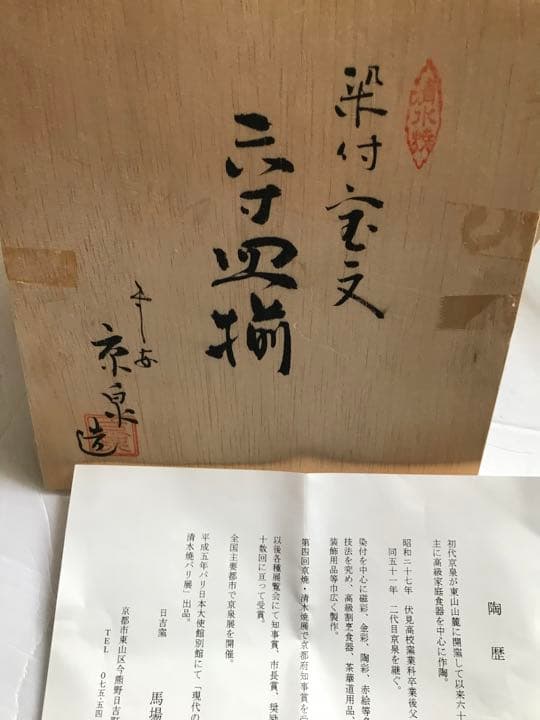 清水焼
染付宝文
六寸皿揃
平安
京泉造
陶歴
初代京泉が東山山麓に開窯して以来六
主に高級家庭食器を中心に作陶。
昭和二十七年 伏見高校窯業科卒業後父
同五十一年 二代目京泉を継ぐ。
染付を中心に磁彩、金彩、陶彩、赤絵等
技法を究め、高級割烹食器、茶華道用品、
装飾用品等巾広く製作。
第四回京焼・清水焼展で京都府知事賞を
以後各種展覧会にて知事賞、市長賞、奨励
十数回に亘って受賞。
全国主要都市で京泉展を開催。
平成五年パリ日本大使館別館にて「現代の
清水焼パリ展」出品。
日吉窯
馬場
京都市東山区今熊野日吉町
TEL 〇七五-五四